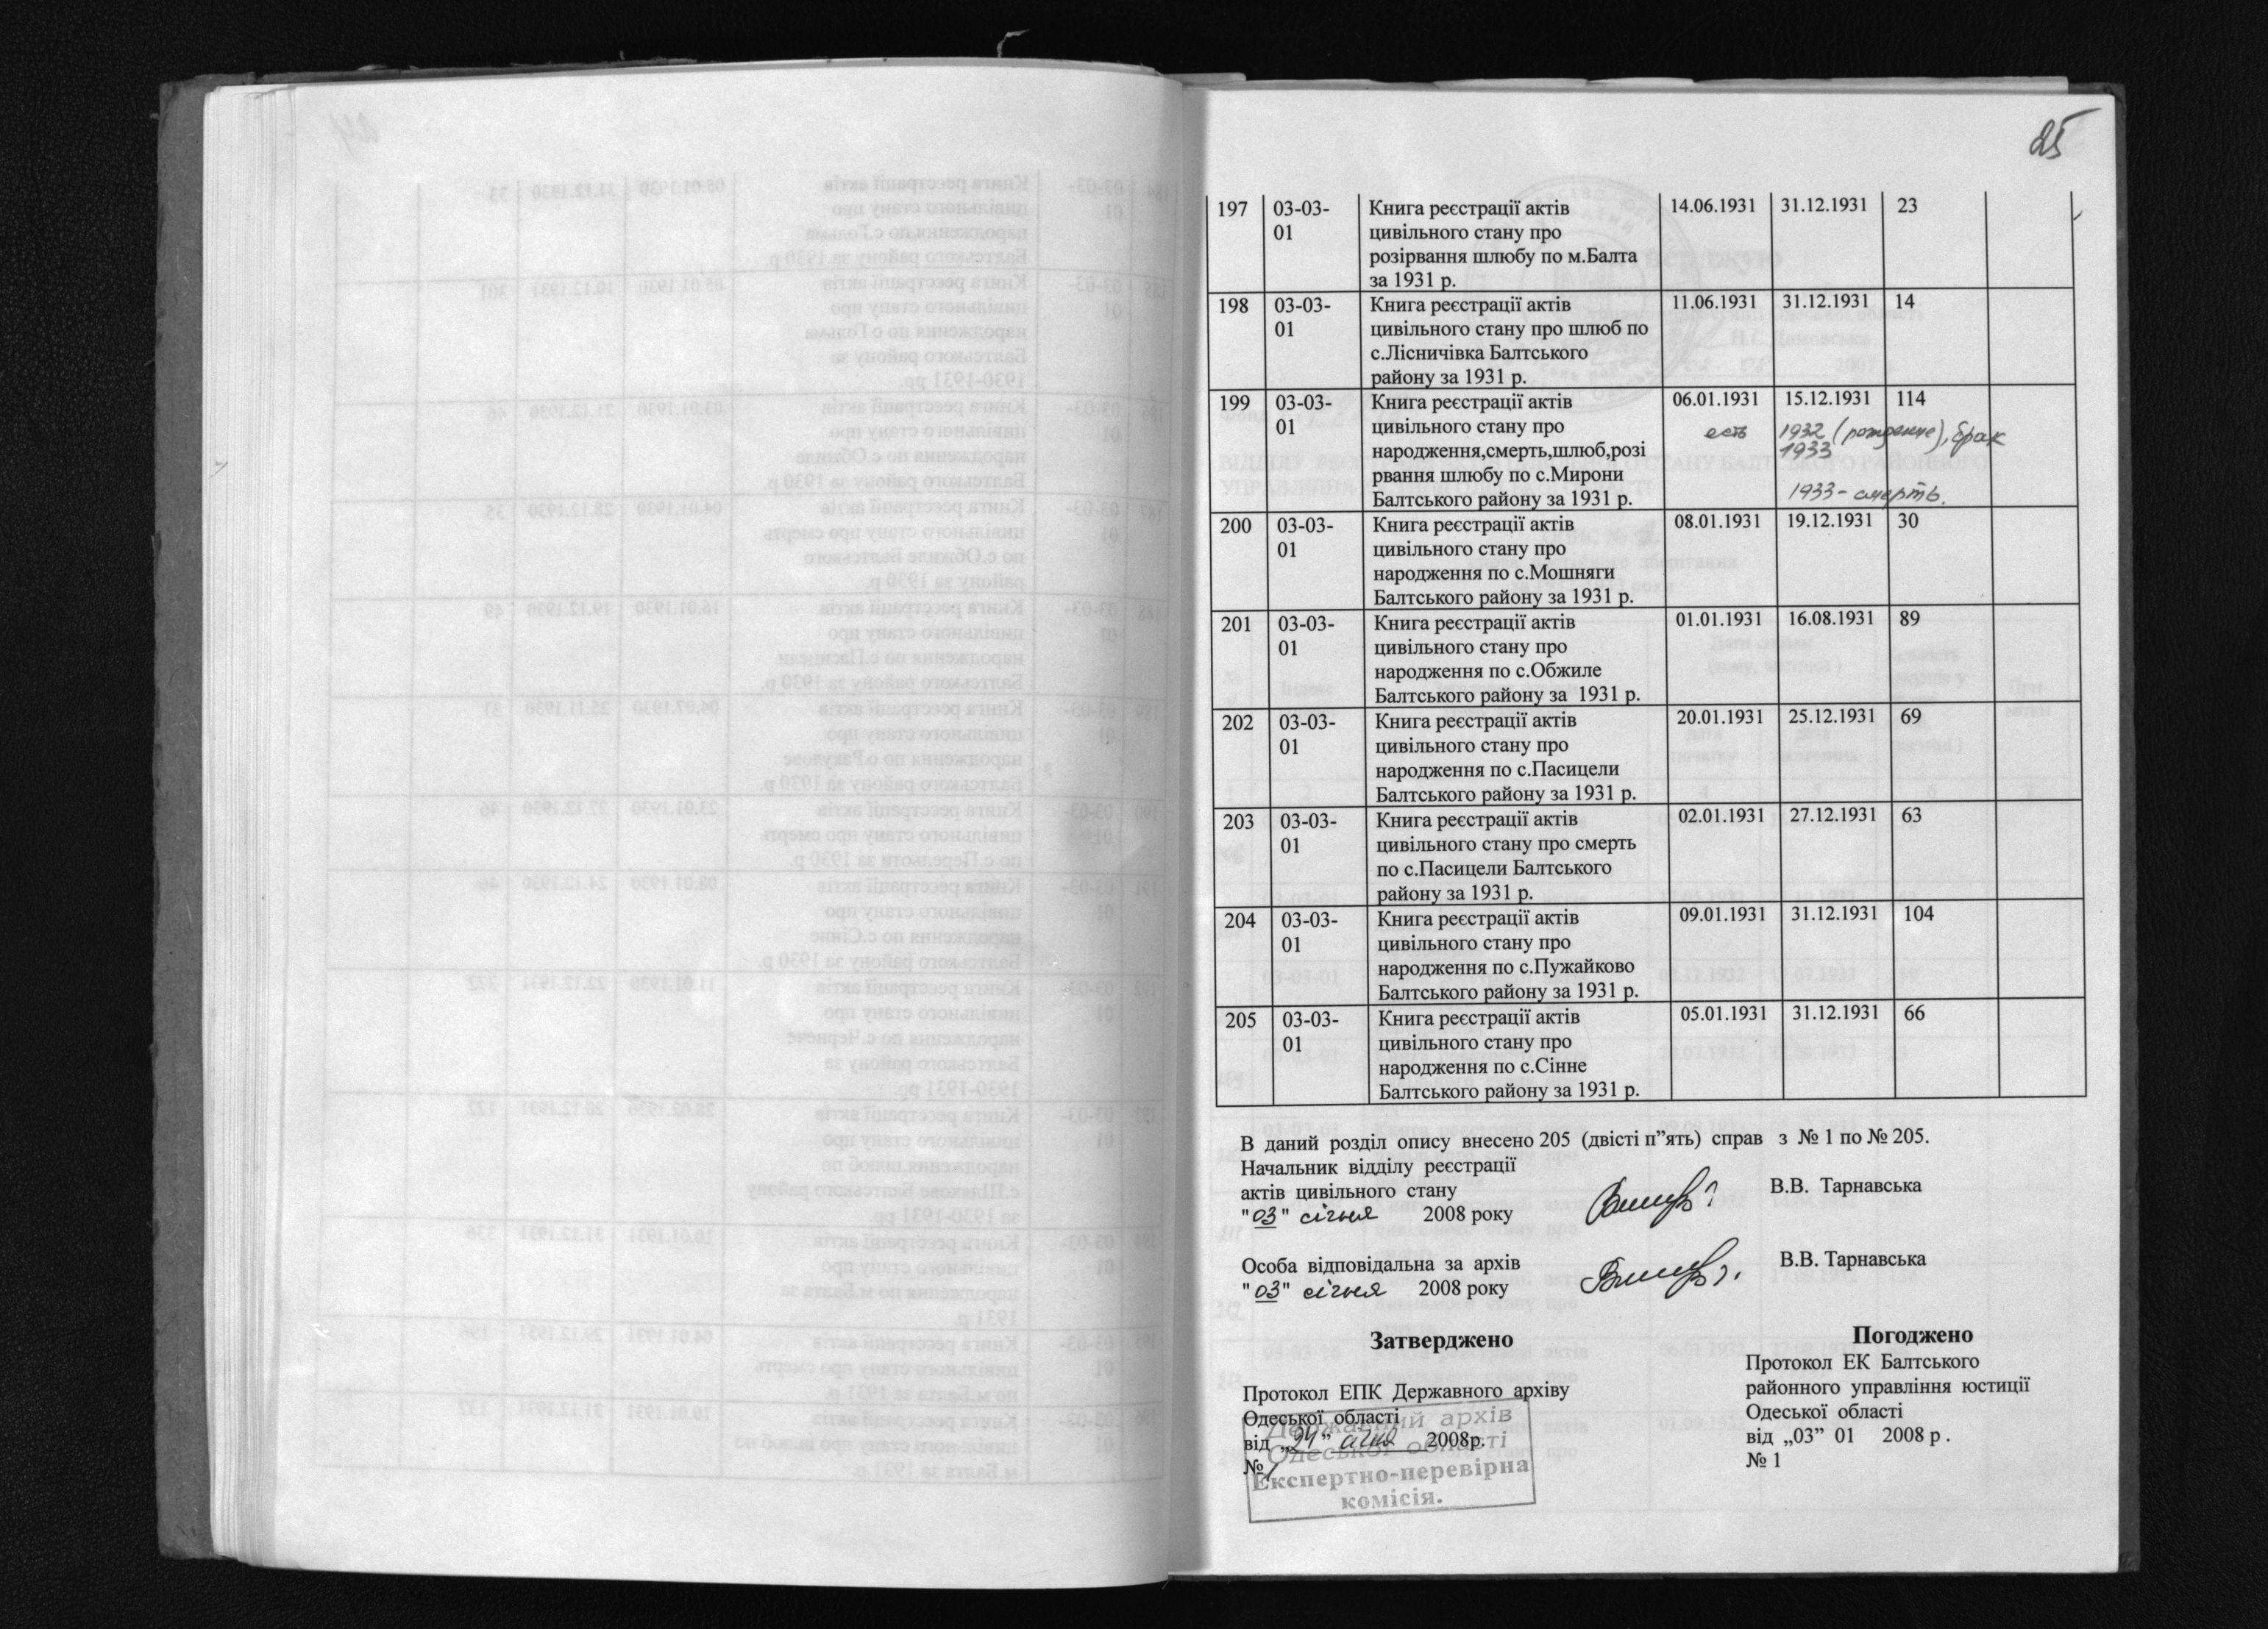 25
197 03-03- Книга реєстрації актів 14.06.1931 31.12.1931 23
01 цивільного стану про
розірвання шлюбу по м.Балта
за 1931 р.
198 03-03- Книга реєстрації актів 11.06.1931 31.12.1931 14
01 цивільного стану про шлюб по
с.Лісничівка Балтського
району за 1931 р.
199 03-03- Книга реєстрації актів 06.01.1931 15.12.1931 114
01 цивільного стану про есть 1932 (рождение), брак
народження,смерть,шлюб,розі 1933
рвання шлюбу по с.Мирони
Балтського району за 1931 р. 1933 - смерть.
200 03-03- Книга реєстрації актів 08.01.1931 19.12.1931 30
01 цивільного стану про
народження по с.Мошняги
Балтського району за 1931 р.
201 03-03- Книга реєстрації актів 01.01.1931 16.08.1931 89
01 цивільного стану про
народження по с.Обжиле
Балтського району за 1931 р.
202 03-03- Книга реєстрації актів 20.01.1931 25.12.1931 69
01 цивільного стану про
народження по с.Пасицели
Балтського району за 1931 р.
203 03-03- Книга реєстрації актів 02.01.1931 27.12.1931 63
01 цивільного стану про смерть
по с.Пасицели Балтського
району за 1931 р.
204 03-03- Книга реєстрації актів 09.01.1931 31.12.1931 104
01 цивільного стану про
народження по с.Пужайково
Балтського району за 1931 р.
205 03-03- Книга реєстрації актів 05.01.1931 31.12.1931 66
01 цивільного стану про
народження по с.Сінне
Балтського району за 1931 р.
В даний розділ опису внесено 205 (двісті п”ять) справ з № 1 по № 205.
Начальник відділу реєстрації
актів цивільного стану В.В. Тарнавська
"03" січня 2008 року
Особа відповідальна за архів В.В. Тарнавська
"03" січня 2008 року
Затверджено
Протокол ЕПК Державного архіву
Одеської області
від „24” січня 2008р.
№ 1
Державний архів
Одеської області
Експертно-перевірна
комісія.
Погоджено
Протокол ЕК Балтського
районного управління юстиції
Одеської області
від „03” 01 2008 р .
№ 1